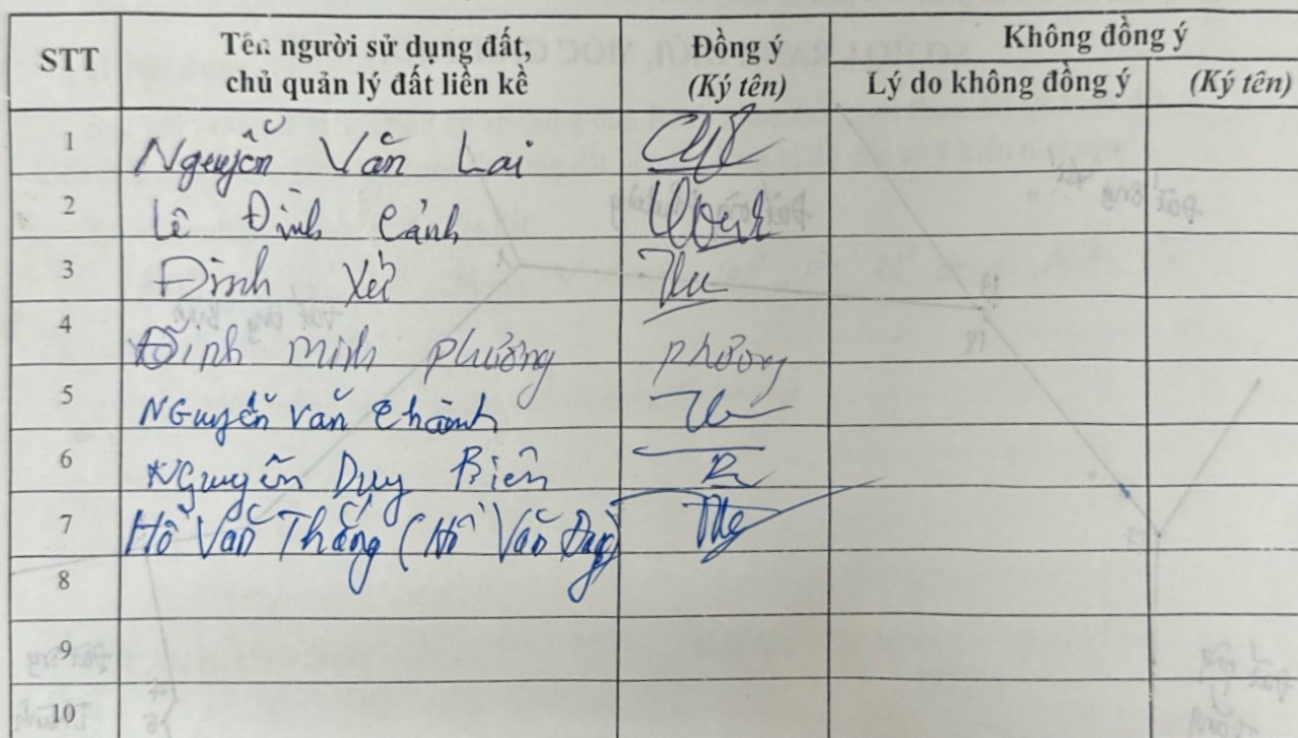 STT Tên người sử dụng đất, chủ quản lý đất liền kề Đồng ý (Ký tên) Không đồng ý
Lý do không đồng ý (Ký tên)
1 Nguyễn Văn Lai
2 Lê Đình Cảnh
3 Đình Xứ
4 Đinh minh phương phương
5 Nguyễn Văn Thành
6 Nguyễn Duy Biên
7 Hồ Văn Thắng (Hồ Văn
8
9
10